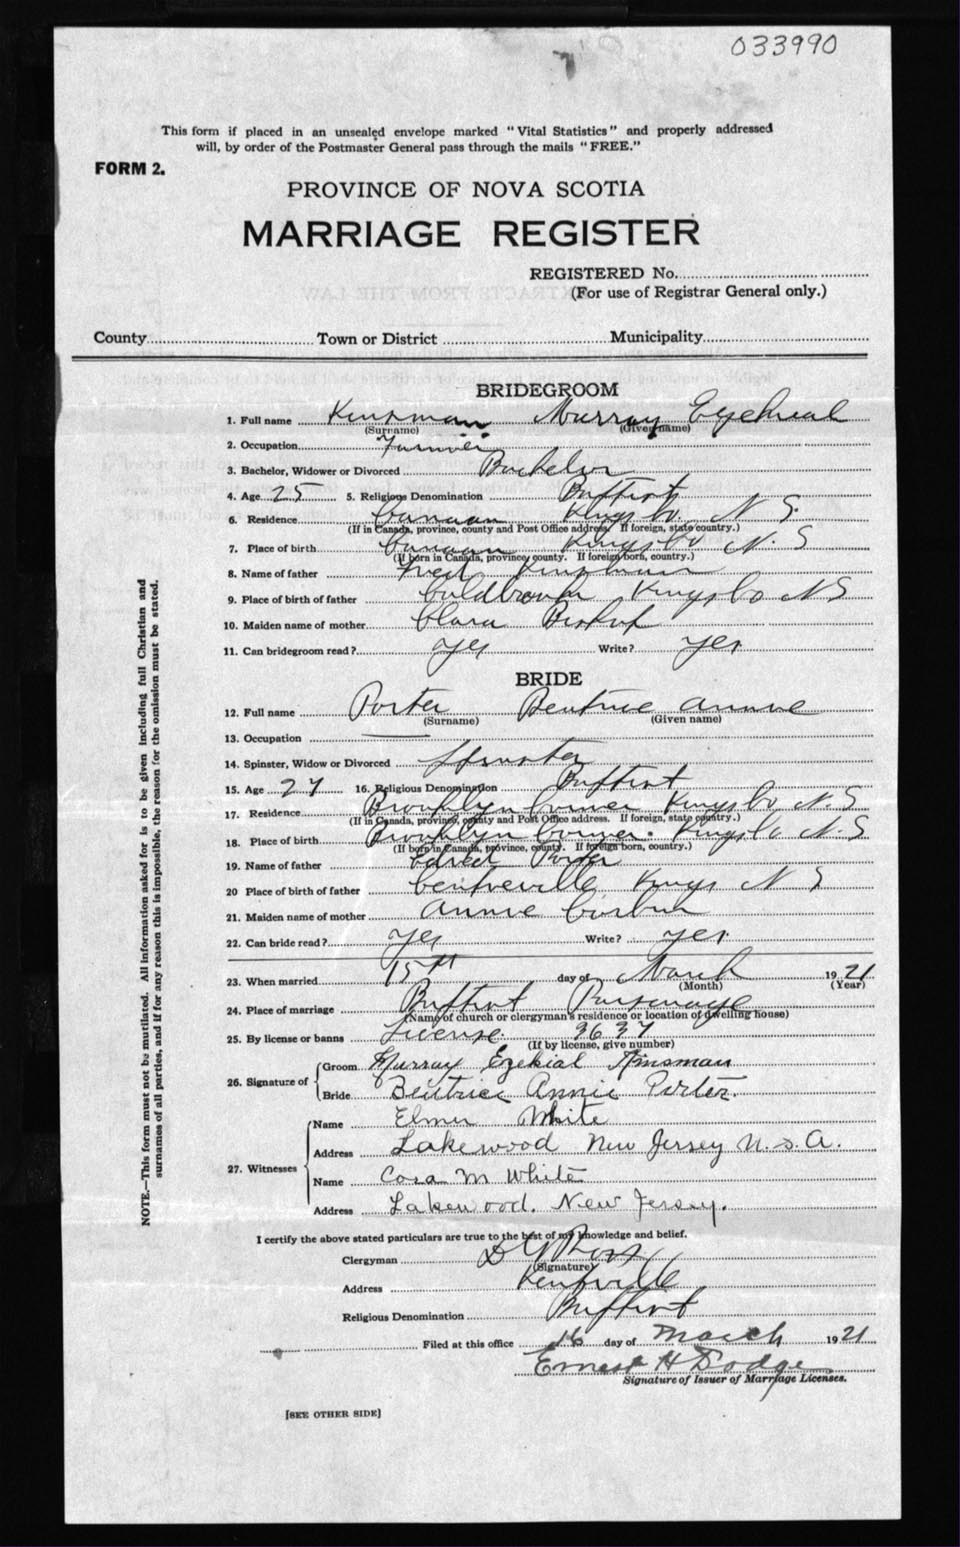 033990
This form if placed in an unsealed envelope marked "Vital Statistics" and properly addressed
will, by order of the Postmaster General pass through the mails "FREE."
FORM 2.
PROVINCE OF NOVA SCOTIA
MARRIAGE REGISTER
REGISTERED No.
(For use of Registrar General only.)
County Town or District Municipality
BRIDEGROOM
1. Full name Kinsman Murray Ezekiel
(Surname) (Given name)
2. Occupation Farmer
3. Bachelor, Widower or Divorced Bachelor
4. Age 25 5. Religious Denomination Baptist
6. Residence Canaan Kings Co. N. S.
(If in Canada, province, county and Post Office address. If foreign, state country.)
7. Place of birth Canaan Kings Co N. S
(If born in Canada, province, county. If foreign born, country.)
8. Name of father Fred Kinsman
9. Place of birth of father Coldbrook Kings Co N S
10. Maiden name of mother Clara Bishop
11. Can bridegroom read? Yes Write? Yes
BRIDE
12. Full name Porter Beatrice Annie
(Surname) (Given name)
13. Occupation
14. Spinster, Widow or Divorced Spinster
15. Age 27 16. Religious Denomination Baptist
17. Residence Brooklyn Corner Kings Co N. S
(If in Canada, province, county and Post Office address. If foreign, state country.)
18. Place of birth Brooklyn Corner. Kings Co N. S
(If born in Canada, province, county. If foreign born, country.)
19. Name of father Porter
20 Place of birth of father Centreville Kings N S
21. Maiden name of mother Annie
22. Can bride read? Yes Write? Yes
23. When married 15th day of March 1921
(Month) (Year)
24. Place of marriage Baptist Parsonage
(Name of church or clergyman's residence or location of dwelling house)
25. By license or banns License 3637
(If by license, give number)
26. Signature of Groom Murray Ezekial Kinsman
Bride Beatrice Annie Porter.
27. Witnesses Name Elmer White
Address Lakewood New Jersey U.S.A.
Name Cora M White
Address Lakewood. New Jersey.
I certify the above stated particulars are true to the best of my knowledge and belief.
Clergyman Ross
(Signature)
Address Kentville
Religious Denomination Baptist
Filed at this office 16 day of March 1921
Ernest H Dodge
Signature of Issuer of Marriage Licenses.
[SEE OTHER SIDE]
NOTE.—This form must not be mutilated. All information asked for is to be given including full Christian and
surnames of all parties, and if for any reason this is impossible, the reason for the omission must be stated.